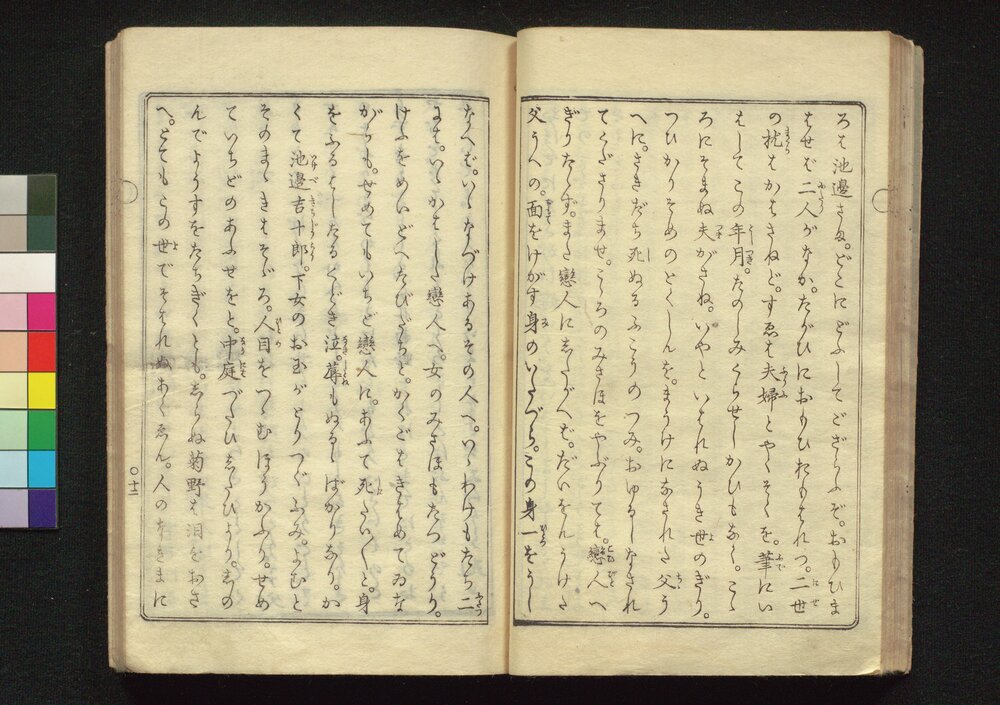 ろは池邉さま。どこにどふしてござらふぞ。おもひま
はせば二人がなか。たがひにおもひおもはれつ。二世
の枕はかはさねど。すゑは夫婦とやくそくを。筆にい
はしてこの年月。たのしみくらせしかひもなく。こゝ
ろにそまぬ夫がさね。いやといはれぬうき世のぎり。
つひかりそめのとくしんを。まうけになされた父う
へに。さきだち死ぬるふこうのつみ。おゆるしなされ
てくださりませ。こゝろのみさほをやぶりては。戀人へ
ぎりたゝず。また戀人にしたがへば。だいをんうけた
父うへの。面をけがす身のいたづら。この身一をうし
なへば。いゝなづけあるその人へ。いゝわけもたち二
には。いゝかはした戀人へ。女のみさほもたつどうり。
けふをめいどへたびだちと。かくごはきはめてゐな
がらも。せめてもいちど戀人に。あふて死たいくと。身
をふるはしたるくどき泣。蓐もぬるゝばかりなり。か
くて池邉吉十郎。下女のお玉がとりつぐふみ。よむと
そのまゝきもそゞろ。人目をつゝむほうかふり。せめ
ていちどのあふせをと。中庭づたひしらひより。しの
んでようすをたちぎくとも。しらぬ菊野は泪をおさ
へ。とてもこの世でそはれぬあくゑん。人のなきまに
〇十二